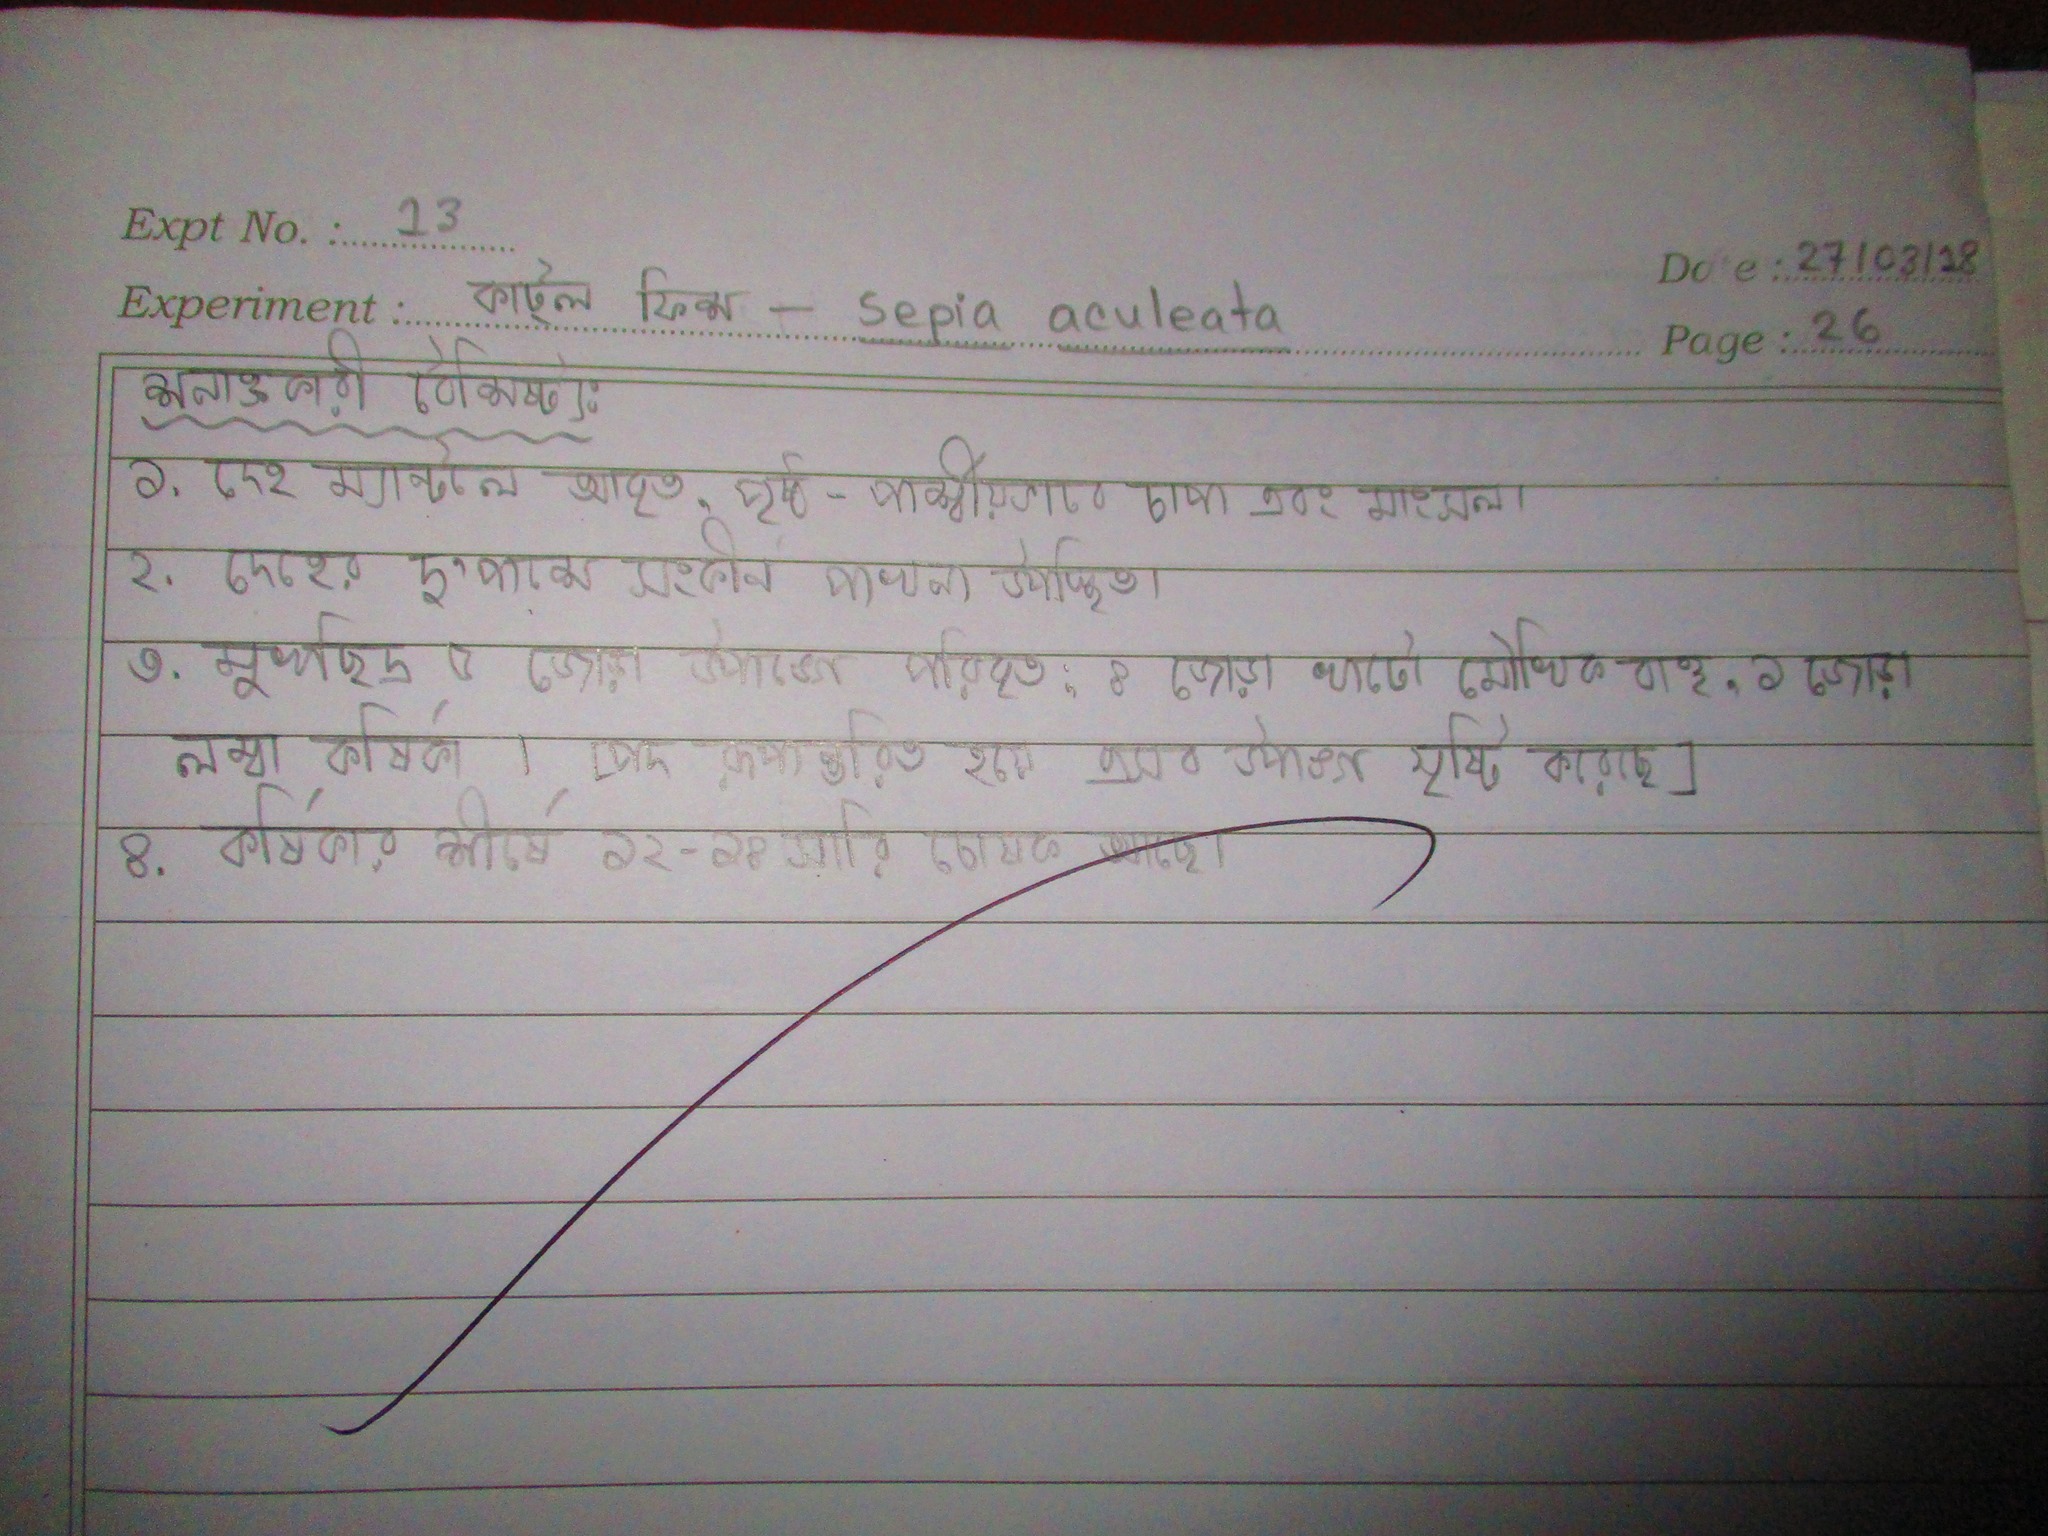 Expt No. : 13
Date : 27/03/18
Experiment : কাটল ফিস — Sepia aculeata
Page : 26
শনাক্তকারী বৈশিষ্ট্যঃ
১. দেহ ম্যান্টলে আবৃত, পৃষ্ঠ - পার্শ্বীয়ভাবে চাপা এবং মাংসল।
২. দেহের দু'পাশে সংকীর্ন পাখনা উপস্থিত।
৩. মুখছিদ্র ৫ জোড়া উপাঙ্গে পরিবৃত; ৪ জোড়া খাটো মৌখিক বাহু, ১ জোড়া
লম্বা কর্ষিকা । [পদ রূপান্তরিত হয়ে এসব উপাঙ্গ সৃষ্টি করেছে]
৪. কর্ষিকার শীর্ষে ১২-১৪ সারি চোষক আছে।